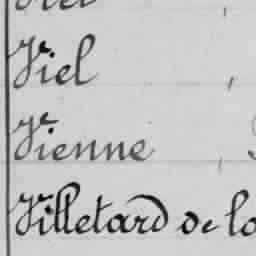 Viel
Vienne
Villetard de